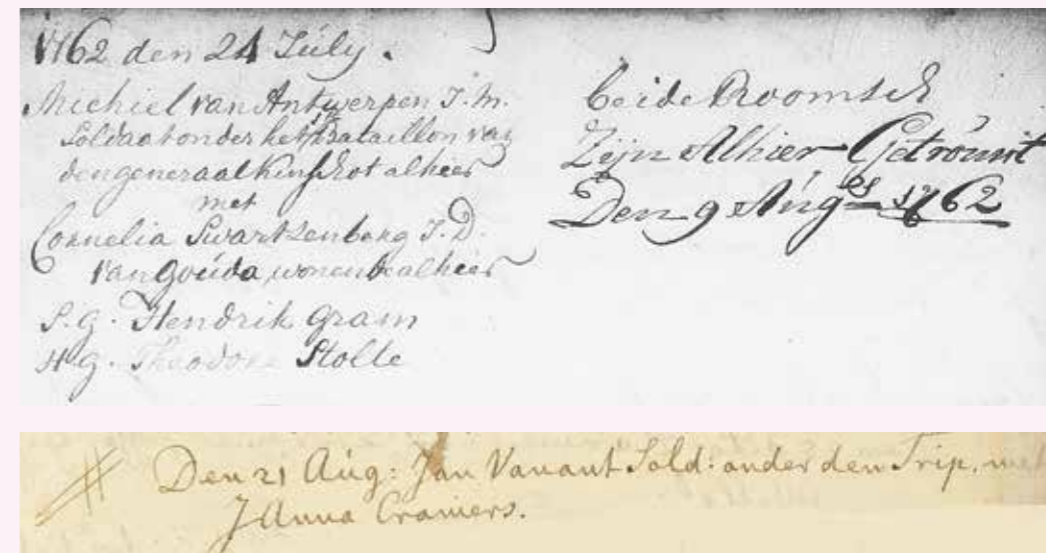 1762 den 24 Júly.
Michiel van Antwerpen J.M.
Soldaat onder het Bataillon van
den generaal Kinschot alhier
met
Cornelia Swartzenberg J.D.
van Goúda, wonende alhier
S.g. Hendrik gram
H.g. Theodor Stolte
beide Roomsch
Zijn Alhier Getroúwt
Den 9 Aúg es 1762
# Den 21 Aúg: Jan Vanant Sold: onder den Trip, met
Anna Cramers.